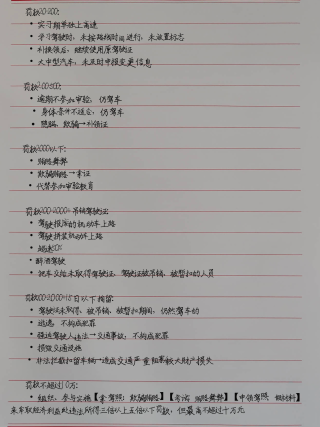 罚款20-200:
• 实习期单独上高速
• 学习驾驶时,未按路线时间进行,未放置标志
• 补换领后,继续使用原驾驶证
• 大中型汽车,未及时申报变更信息
罚款200-500:
• 逾期不参加审验,仍驾车
• 身体条件不适应,仍驾车
• 隐瞒,欺骗→补领证
罚款2000以下:
• 贿赂舞弊
• 欺骗贿赂→拿证
• 代替参加审验教育
罚款200-2000+吊销驾驶证:
• 驾驶报废的机动车上路
• 驾驶拼装机动车上路
• 超速50%
• 醉酒驾驶
• 把车交给未取得驾驶证,驾驶证被吊销、被暂扣的人员
罚款200-2000+15日以下拘留:
• 驾驶证未取得,被吊销、被暂扣期间,仍然驾车的
• 逃逸,不构成犯罪
• 强迫驾驶人违法→交通事故,不构成犯罪
• 损毁交通设施
• 非法拦截扣留车辆→造成交通严重阻塞较大财产损失
罚款不超过10万:
• 组织,参与实施【拿驾照,欺骗贿赂】【考试,贿赂舞弊】【申领驾照,假材料】
来牟取经济利益的违法所得三倍以上五倍以下罚款,但最高不超过十万元